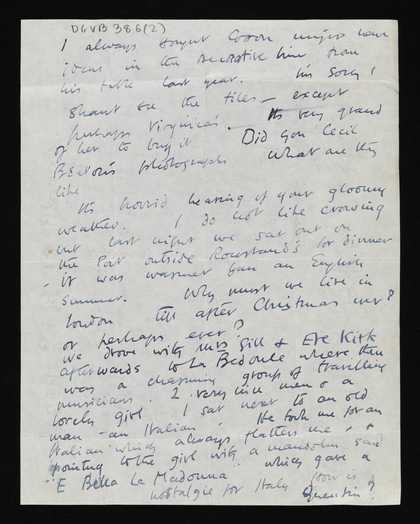 DGVB 386(2)
I always forget Coron might have
ideas in the decorative line from
his table last year. I'm sorry I
Shant see the tiles – except
perhaps Virginia's. It's very grand
of her to buy it. Did you Cecil
Beaton's photographs what are they
like
It's horrid hearing of your gloomy
weather. I do not like crowing
but last night we sat out on
the Port outside for dinner
it was warmer than an English
summer. Why must we live in
London till after Christmas ever?
or perhaps ever?
We drove with Miss Gill & Eve Kirk
afterwards to La Bedoule where there
was a charming group of travelling
musicians. 2 very nice men & a
lovely girl. I sat next to an old
man – an Italian. He took me for an
Italian which always flatters me, &
pointing to the girl with a mandolin said
"E Bella La Madonna" which gave a
nostalgie for Italy How is
Quentin?